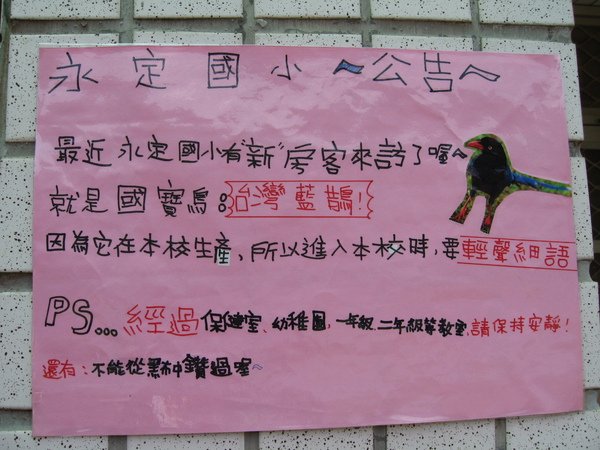 永定國小~公告~
最近永定國小有"新"房客來訪了喔~
就是國寶鳥:台灣藍鵲!
因為它在本校生產、所以進入本校時,要輕聲細語
PS...經過保健室、幼稚園、一年級、二年級等教室,請保持安靜!
還有:不能從黑布中鑽過喔~